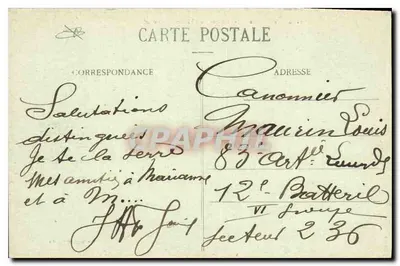 CARTE POSTALE
CORRESPONDANCE
ADRESSE
Salutations
distingueés
Je te la serre
Mes amitiés à Marianne
et à M....
Canonnier
Maurin Louis
83 Artie Lourde
12e Batterie
VI Groupe
Secteur 236